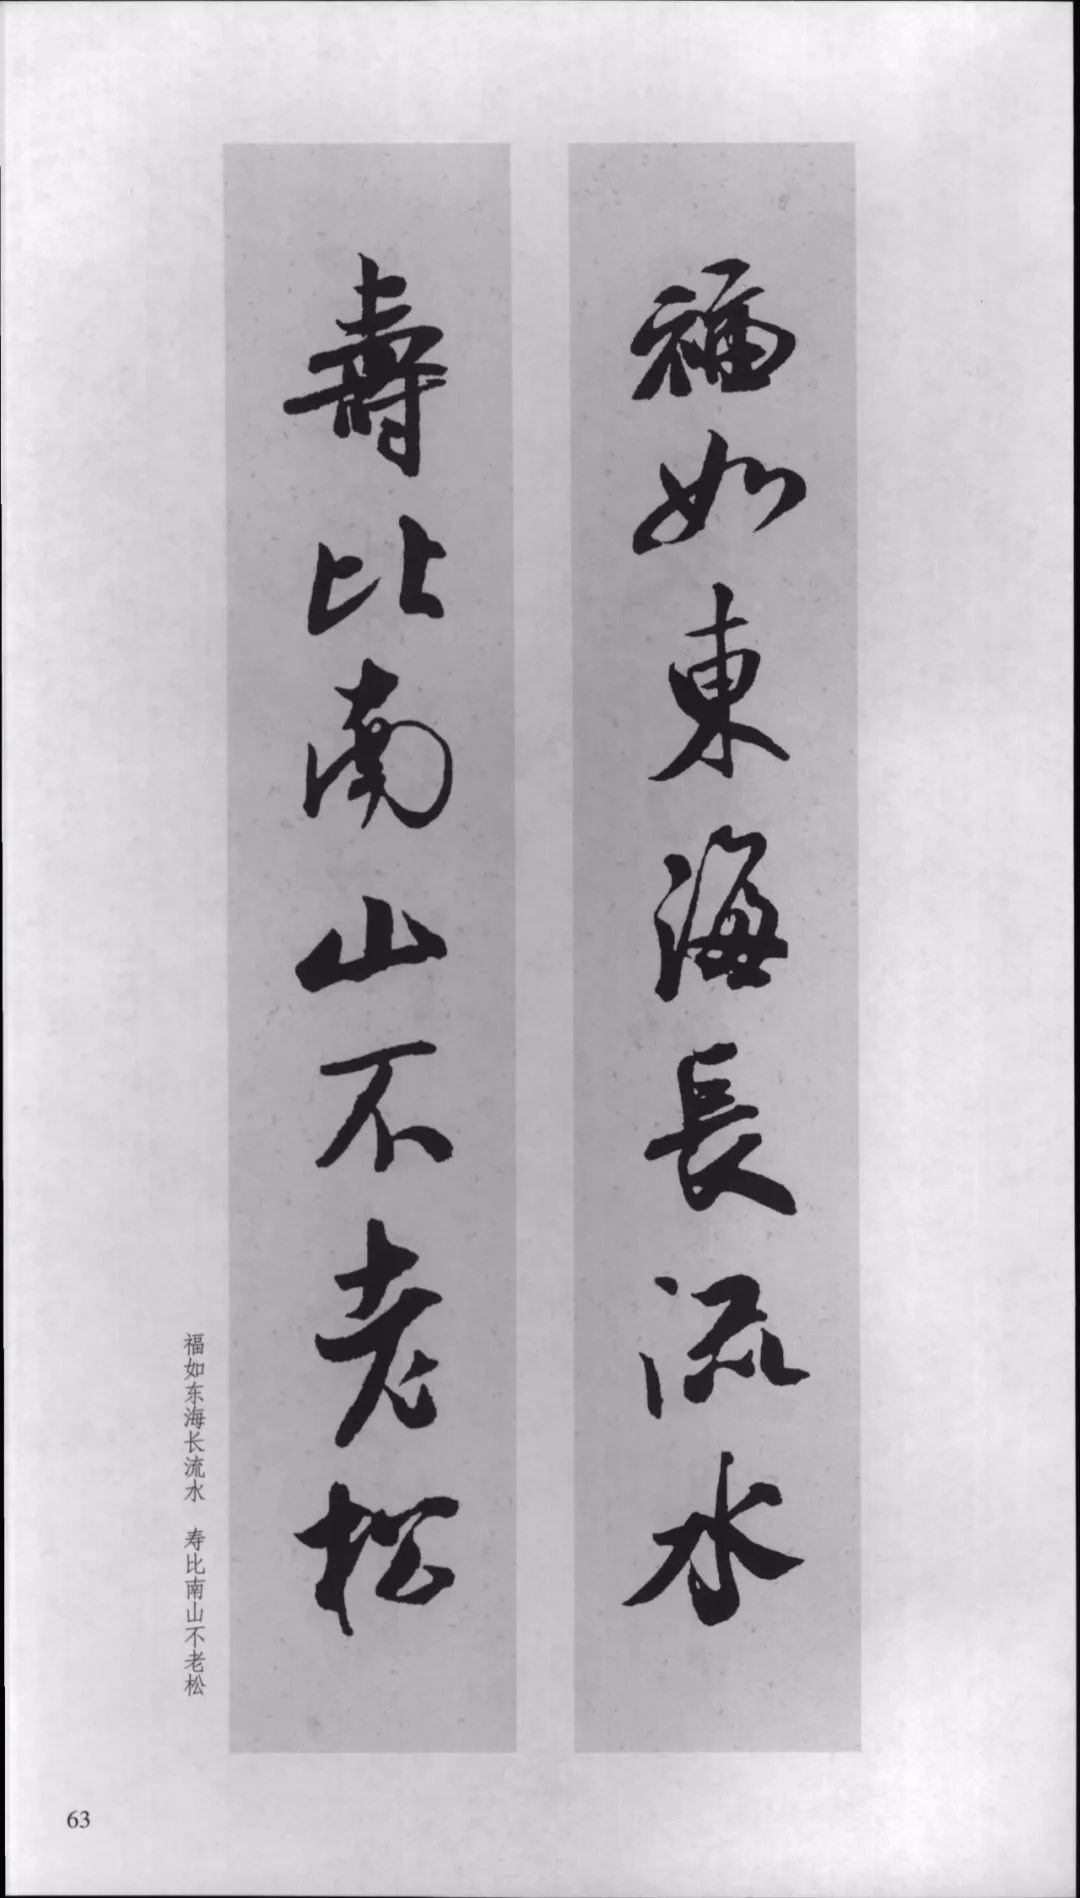 福如東海長流水
壽比南山不老松
福如东海长流水 寿比南山不老松
63